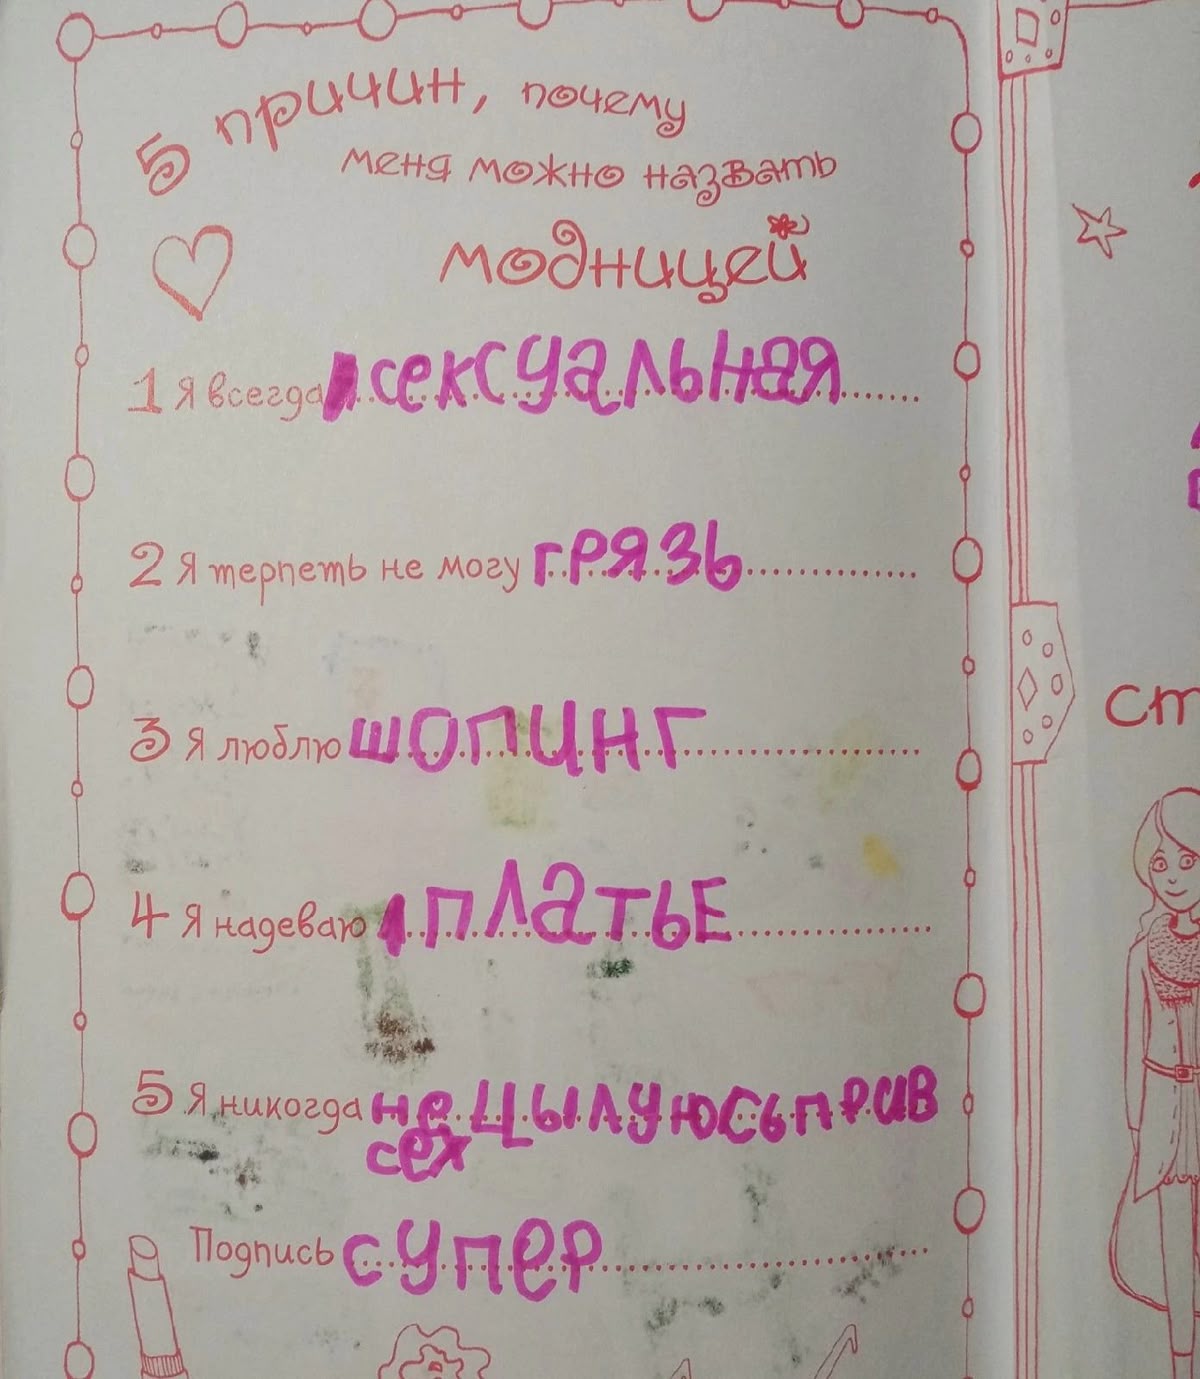 5 причин, почему
меня можно назвать
модницей
1 Я всегда сексуальная
2 Я терпеть не могу грязь
3 Я люблю шопинг
4 Я надеваю платье
5 Я никогда не цылуюсь прив
сех
Подпись супер
ст